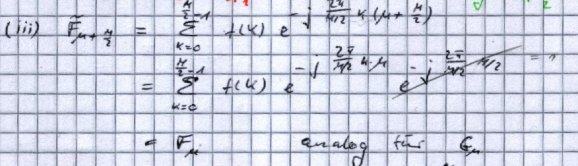 (iii) F̃_{μ+M/2} = Σ_{k=0}^{M/2-1} f(k) e^{-j 2π/(M/2) k (μ+M/2)}
= Σ_{k=0}^{M/2-1} f(k) e^{-j 2π/(M/2) k·μ} e^{-j 2π/(M/2) M/2} = 1
= F̃_μ analog für G_μ